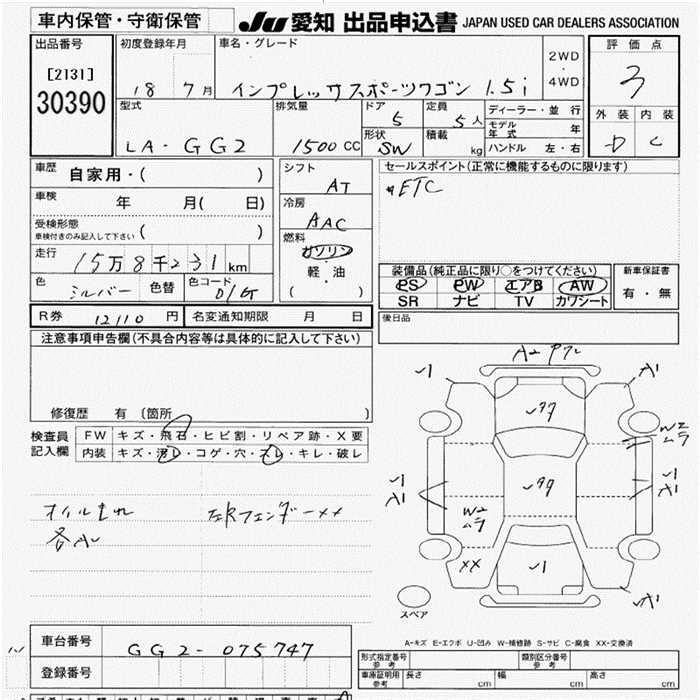 車内保管・守衛保管 JU 愛知 出品申込書 JAPAN USED CAR DEALERS ASSOCIATION
出品番号 初度登録年月 車名・グレード 評価点
[2131]
30390
18 7月 インプレッサスポーツワゴン 1.5i 2WD ・ 4WD 3
型式 排気量 ドア 5 定員 5人 ディーラー・並行 外装 内装
LA-GG2 1500 CC 形状 SW 積載 kg モデル年式 年 D C
ハンドル 左・右
車歴 自家用・( ) シフト AT セールスポイント(正常に機能するものに限ります)
車検 年 月( 日) 冷房 AAC ETC
受検形態
車検付きのみ記入して下さい ( ) 燃料 ガソリン
走行 15万8千231km 軽・油 装備品(純正品に限り○をつけてください) 新車保証書
色 シルバー 色替 色コード D1G ( ) PS PW エアB AW 有・無
SR ナビ TV カワシート
R券 12110 円 名変通知期限 月 日 後日品
注意事項申告欄(不具合内容等は具体的に記入して下さい)
修復歴 有 〔箇所 〕
検査員 FW キズ・飛石・ヒビ割・リペア跡・X要
記入欄 内装 キズ・汚レ・コゲ・穴・スレ・キレ・破レ
オイルもれ 左Rフェンダーxx
各A
W2
ムラ
A1
A1
W2
ムラ
XX
A1
スペア
A-キズ E-エクボ U-凹み W-補修跡 S-サビ C-腐食 XX-交換済
車台番号 GG2-075747
登録番号
形式指定番号 参考 類別区分番号 参考
車庫証明用 参考 長さ cm 幅 cm 高さ cm